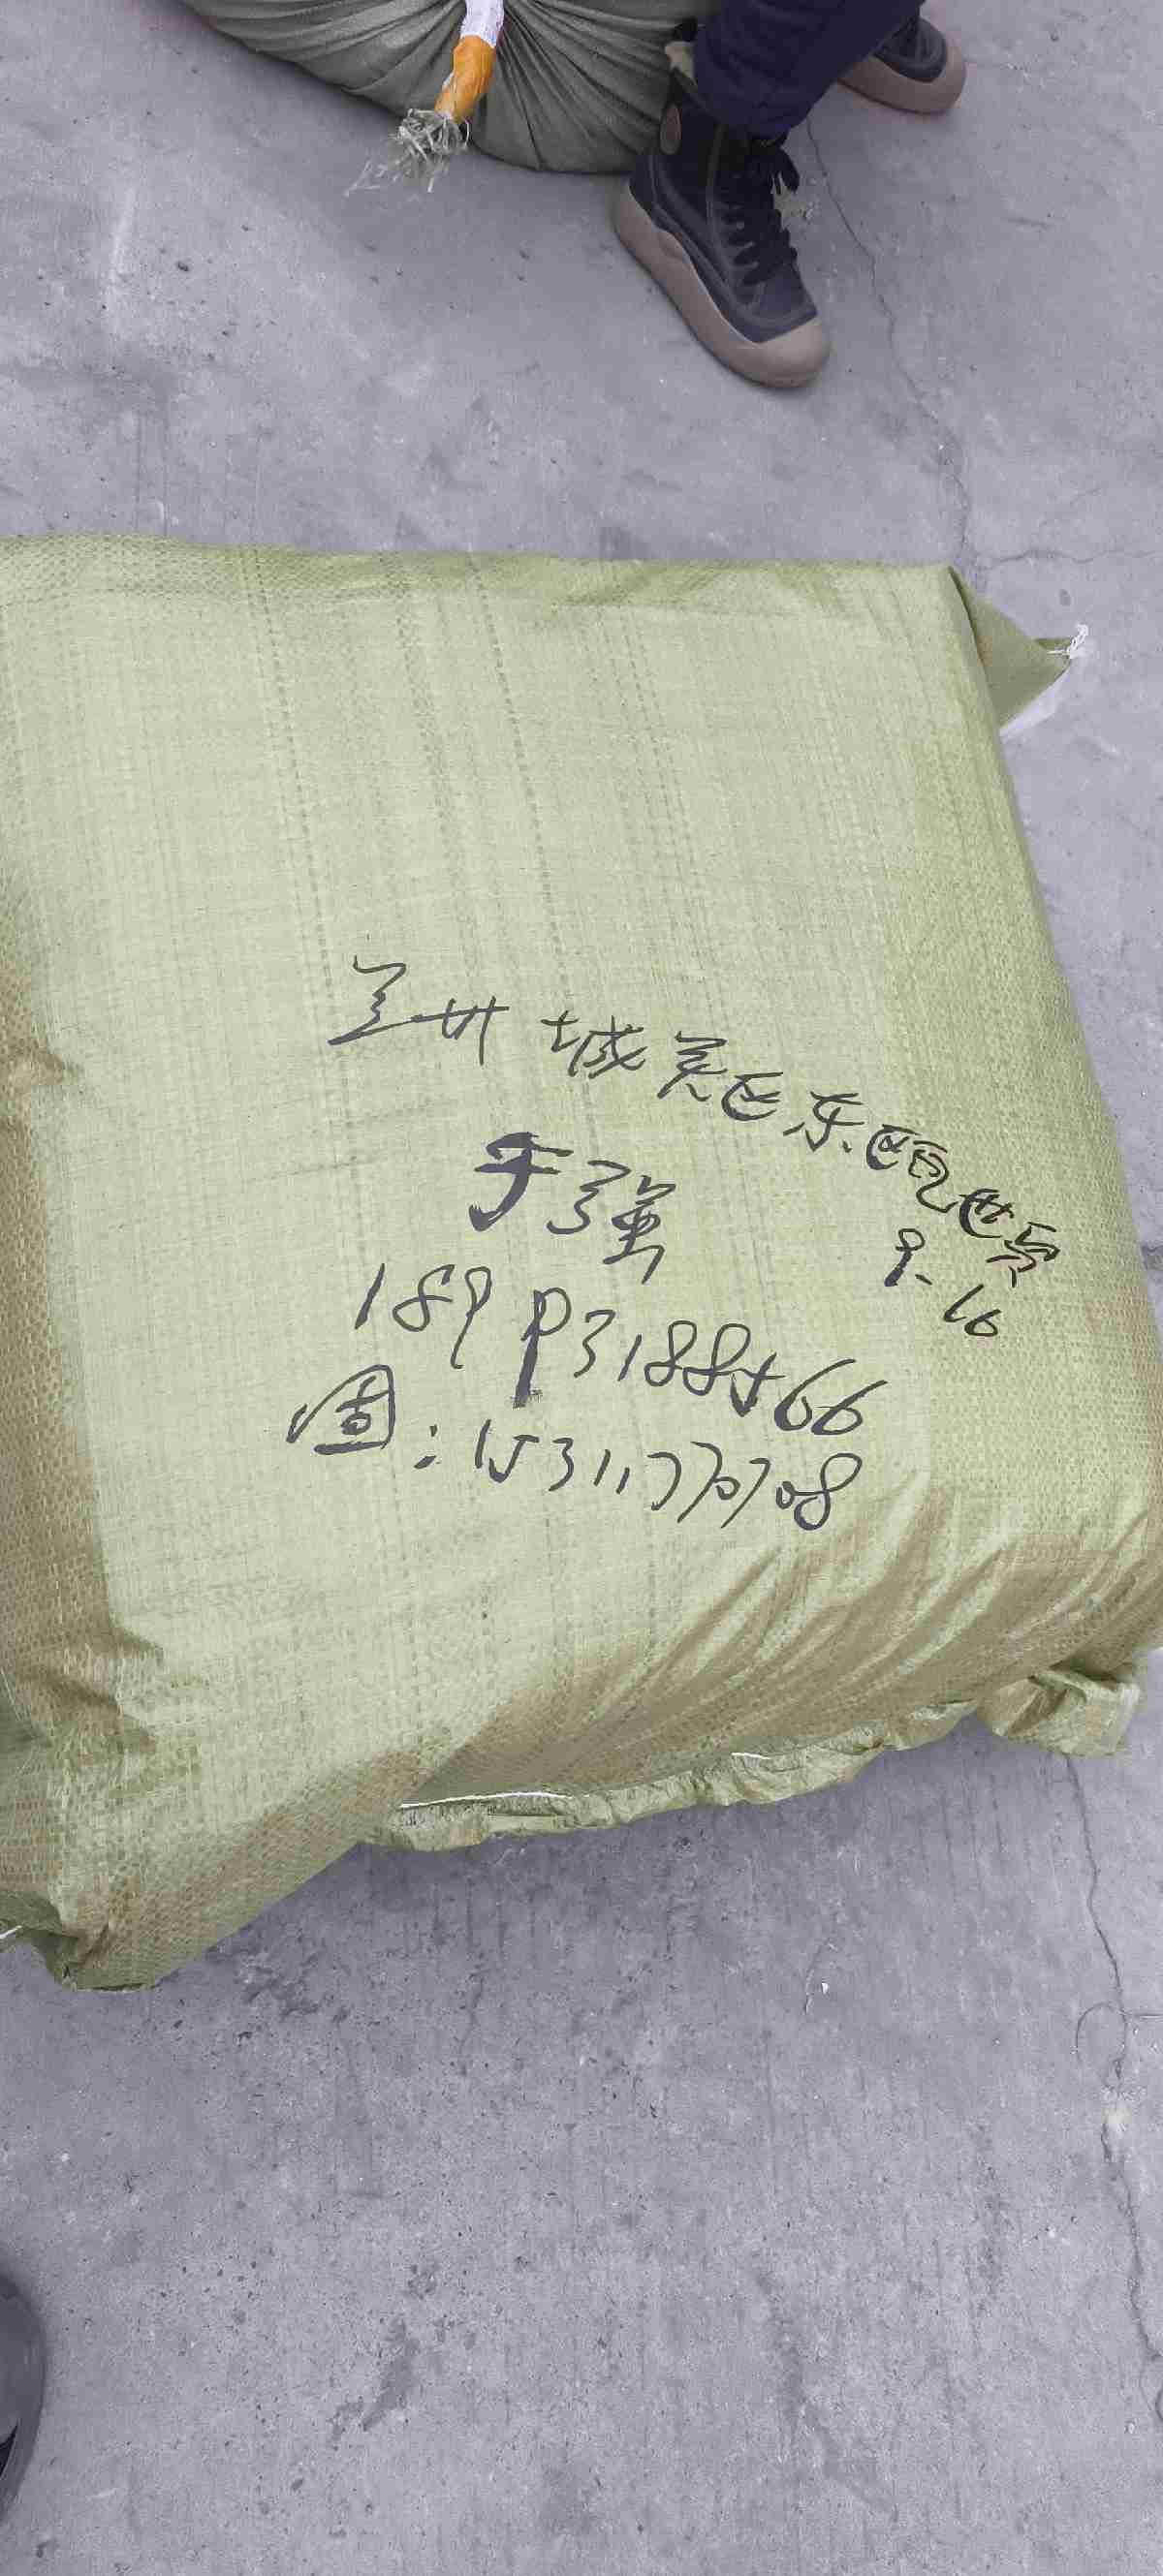 兰州城关区东瓯世贸
9-16
于强
18993188566
固:15311770708